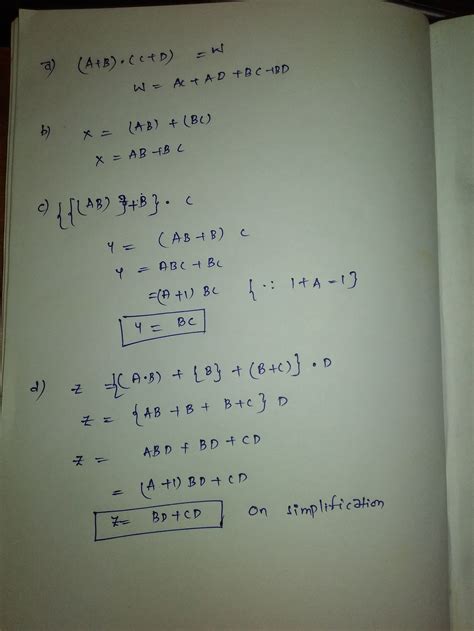 a) (A+B)·(C+D) = W
W = AC + AD + BC + BD
b) X = (AB) + (BC)
X = AB + BC
c) {[(AB)]+B}· C
Y = (AB+B) C
Y = ABC + BC
= (A+1) BC { ∵ 1+A = 1}
Y = BC
d) Z = {(A·B) + {B} + (B+C)}·D
Z = {AB + B + B+C} D
Z = ABD + BD + CD
= (A+1) BD + CD
Z = BD + CD On simplification